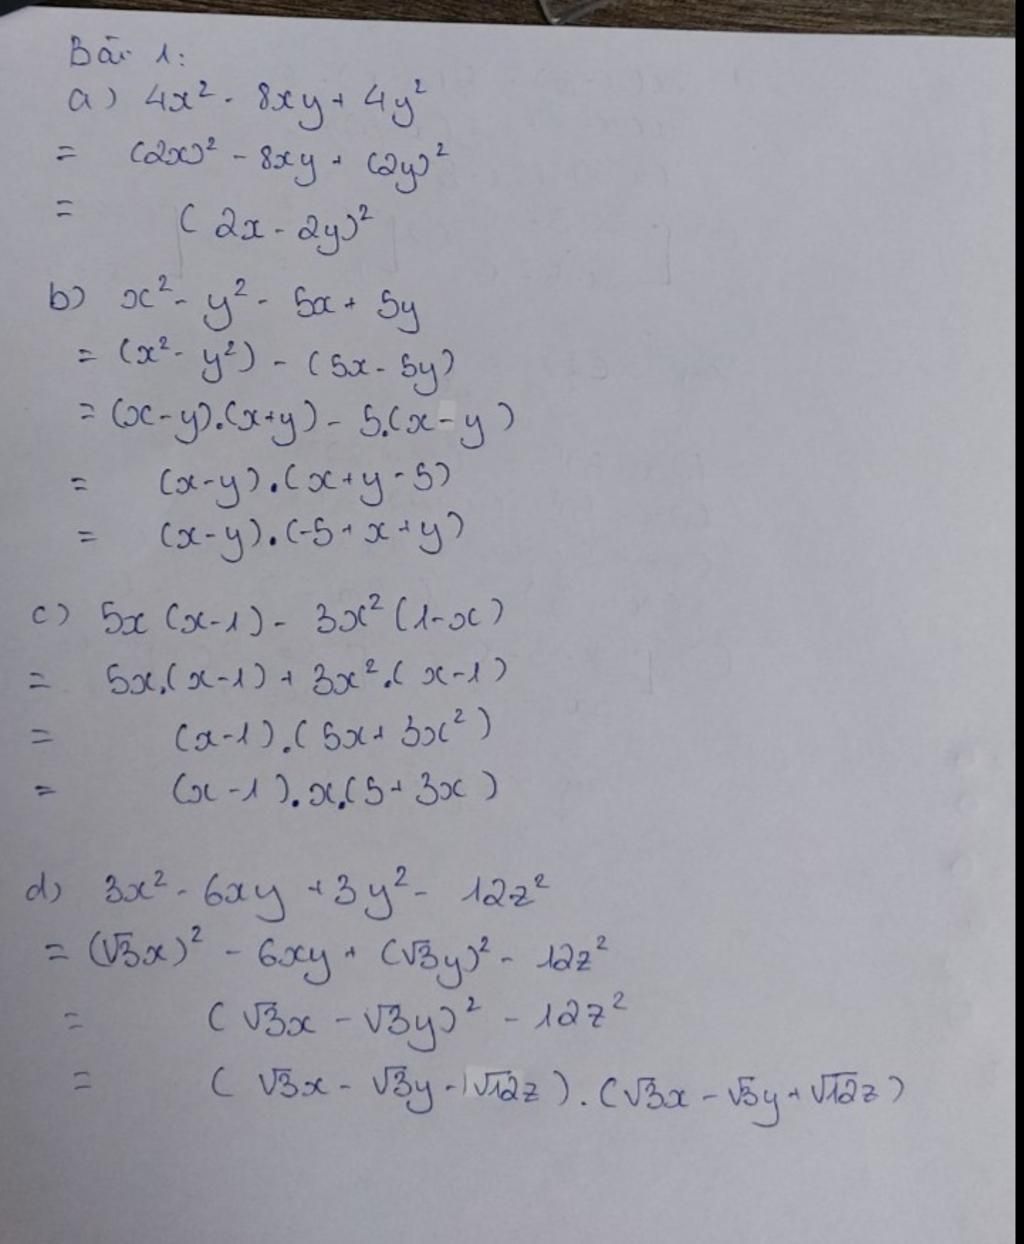 Bài 1:
a) 4x² - 8xy + 4y²
= (2x)² - 8xy + (2y)²
= (2x - 2y)²
b) x² - y² - 5x + 5y
= (x² - y²) - (5x - 5y)
= (x-y).(x+y) - 5.(x-y)
= (x-y).(x+y-5)
= (x-y).(-5+x+y)
c) 5x (x-1) - 3x² (1-x)
= 5x.(x-1) + 3x².(x-1)
= (x-1).(5x+3x²)
= (x-1).x.(5+3x)
d) 3x² - 6xy + 3y² - 12z²
= (√3x)² - 6xy + (√3y)² - 12z²
= (√3x - √3y)² - 12z²
= (√3x - √3y - √12z).(√3x - √3y + √12z)